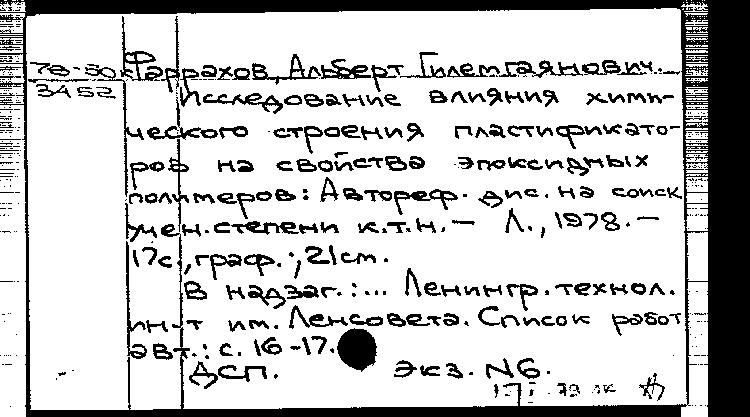 78-50к
3452
Фаррахов, Альберт Гилемгаянович.
Исследование влияния хими-
ческого строения пластификато-
ров на свойства эпоксидных
полимеров: Автореф. дис. на соиск
учен. степени к.т.н. — Л., 1978. —
17с., граф.; 21см.
В надзаг.: ... Ленингр. технол.
ин-т им. Ленсовета. Список работ
авт.: с. 16-17.
ДСП. Экз. N6.